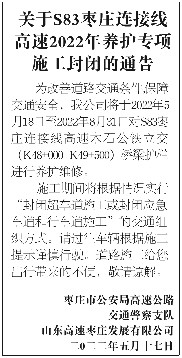 关于S83枣庄连接线
高速2022年养护专项
施工封闭的通告
为改善道路交通条件保障
交通安全，我公司将于2022年5
月18日至2022年8月21日对S83枣
庄连接线高速木石公铁立交
（K48+000-K49+500）桥梁护栏
进行养护维修。
施工期间将根据情况实行
“封闭超车道施工或封闭应急
车道和行车道施工”的交通组
织方式。请过往车辆根据施工
提示谨慎行驶。道路施工给您
出行带来的不便，敬请谅解。
枣庄市公安局高速公路
交通警察支队
山东高速枣庄发展有限公司
二〇二二年五月十七日